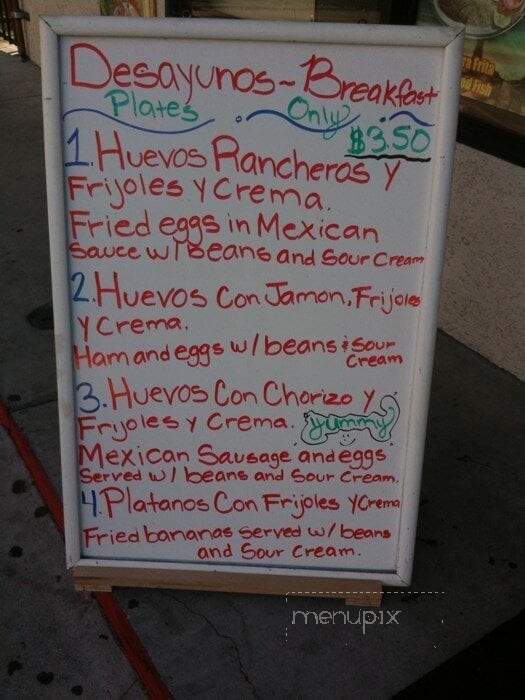 Desayunos ~ Breakfast
Plates Only $3.50
1. Huevos Rancheros y
Frijoles y Crema.
Fried eggs in Mexican
Sauce w/ Beans and Sour Cream
2. Huevos Con Jamon, Frijoles
y Crema.
Ham and eggs w/ beans & Sour
Cream
3. Huevos Con Chorizo y
Frijoles y Crema. yummy
Mexican Sausage and eggs
Served w/ beans and Sour Cream.
4. Platanos Con Frijoles y Crema
Fried bananas served w/ beans
and Sour Cream.
menupix